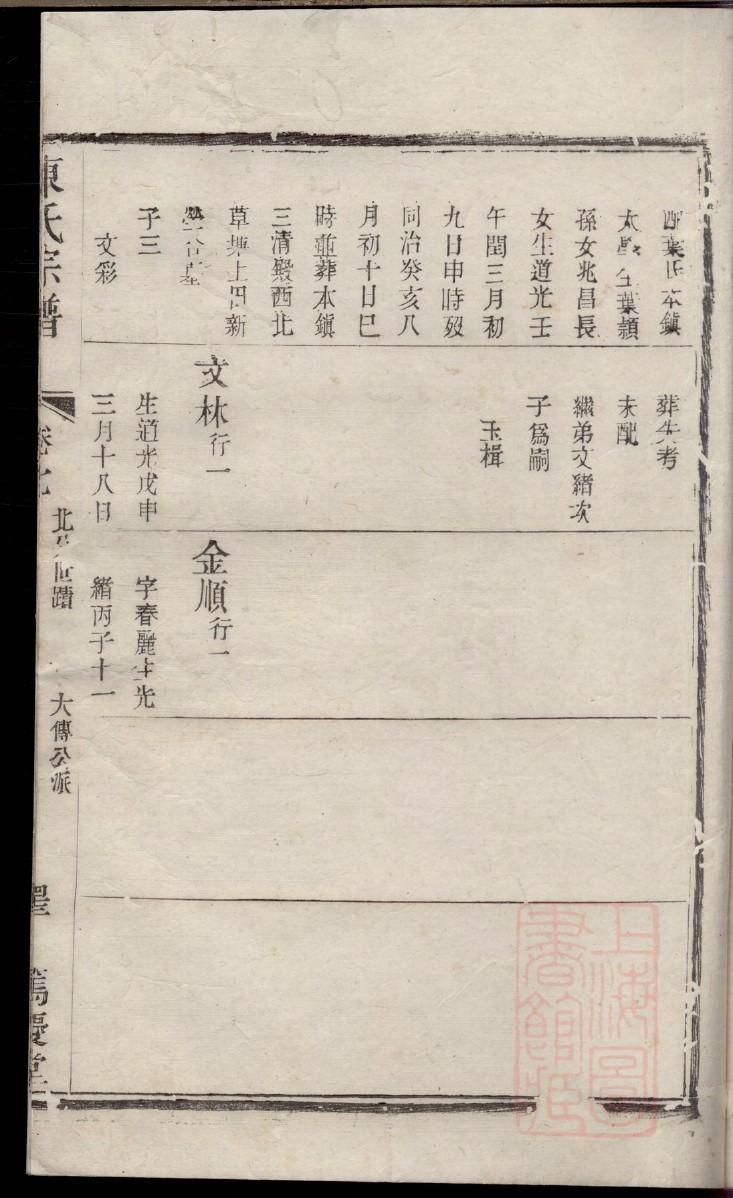 配葉氏本鎮
太學生葉穎
孫女兆昌長
女生道光壬
午閏三月初
九日申時歿
同治癸亥八
月初十日巳
時並葬本鎮
三清殿西北
草墩上田新
塋合墓
子三
文彩
葬先考
未配
繼弟文緒次
子爲嗣
玉楫
文林行一
生道光戊申
三月十八日
金順行一
字春麗生光
緒丙子十一
陳氏宗譜
卷七
北 世蹟
大傳公派
篤慶堂
上海圖
書館藏